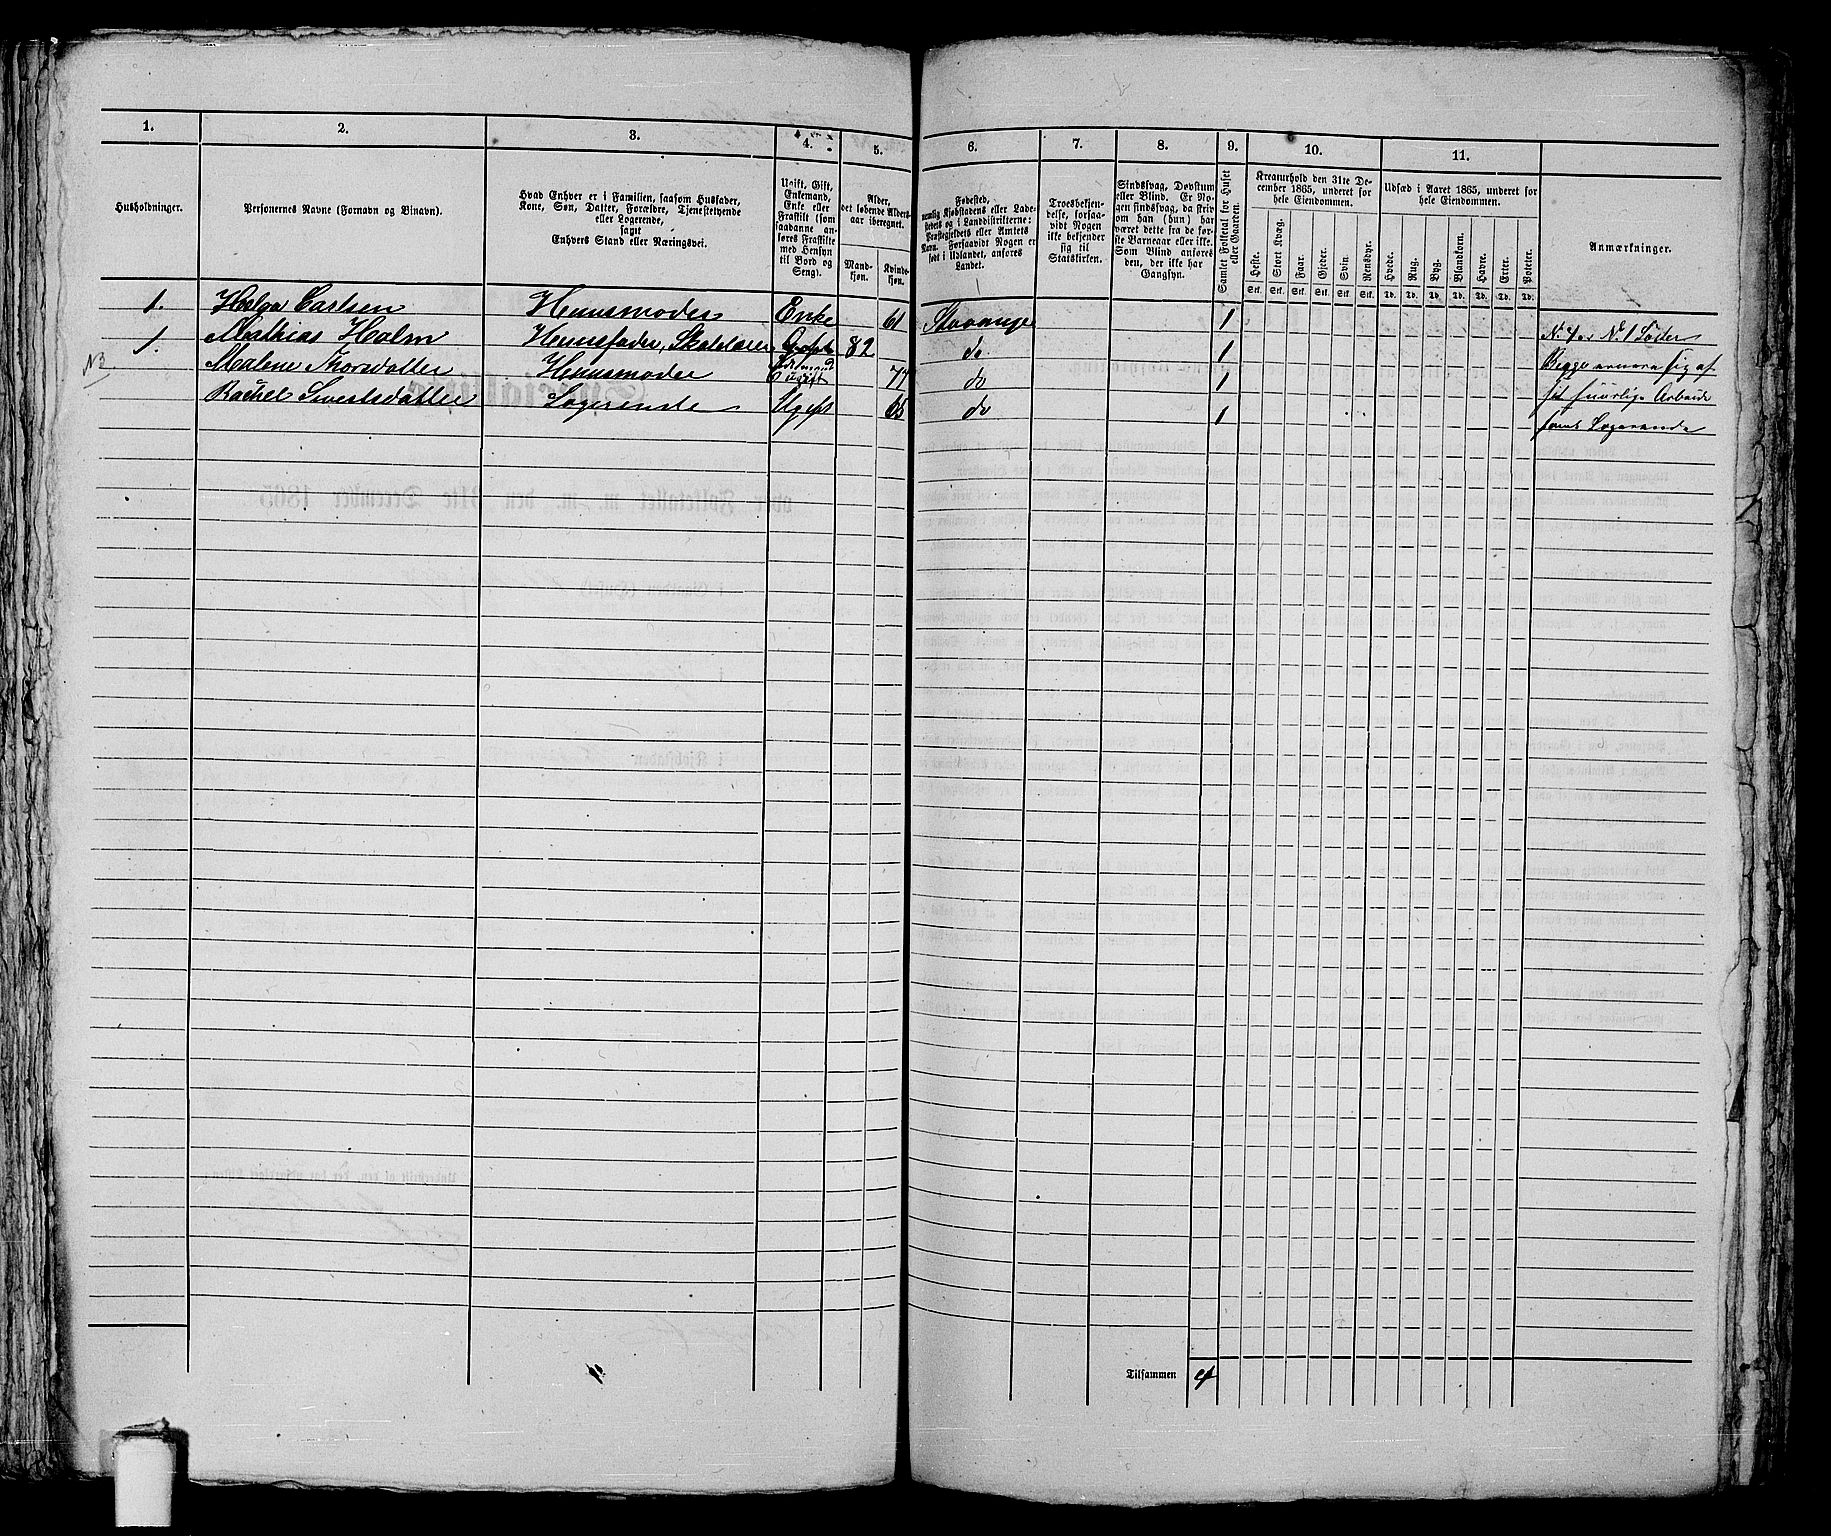 1. 2. 3. 4. 5. 6. 7. 8. 9. 10. 11.
Husholdninger.
Personernes Navne (Fornavn og Binavn).
Hvad Enhver er i Familien, saasom Husfader,
Kone, Søn, Datter, Forældre, Tjenestetyende
eller Logerende,
samt
Enhvers Stand eller Næringsvei.
Ugift, Gift,
Enkemand,
Enke eller
Fraskilt (som
saadanne an-
føres Fraskilte
med Hensyn
til Bord og
Seng).
Alder,
det løbende Alders-
aar iberegnet.
Mand-
kjøn.
Kvinde-
kjøn.
Fødested,
nemlig Kjøbstadens eller Lade-
stedets og i Landdistrikterne:
Præstegjeldets eller Amtets
Navn. Forsaavidt Nogen er
født i Udlandet, anføres
Landet.
Troesbekjen-
delse, forsaa-
vidt Nogen
ikke bekjender
sig til
Statskirken.
Sindssvag, Døvstum
eller Blind. Er No-
gen sindssvag, da skriv
om han (hun) har
været dette fra de før-
ste Barneaar eller ikke.
Som Blind anføres
den, der ikke har
Gangsyn.
Samlet Folketal for Huset
eller Gaarden.
Kreaturhold den 31te De-
cember 1865, underet for
hele Eiendommen.
Heste. Stort Kvæg. Faar. Gjeder. Svin. Rensdyr.
Stk. Stk. Stk. Stk. Stk. Stk.
Udsæd i Aaret 1865, underet for
hele Eiendommen.
Hvede. Rug. Byg. Blandkorn. Havre. Erter. Poteter.
Td. Td. Td. Td. Td. Td. Td.
Anmærkninger.
1. Helga Carlsen Huusmoder Enke 61 Stavanger 1
1. Mathias Holm Huusfader, 82 do 1
Malene Thorsdatter Huusmoder 77 do 1
Rachel Logerende Ugift 65 do 1
Begge ernære sig af
sit huuslige Arbeide
samt Logerende
Tilsammen 4